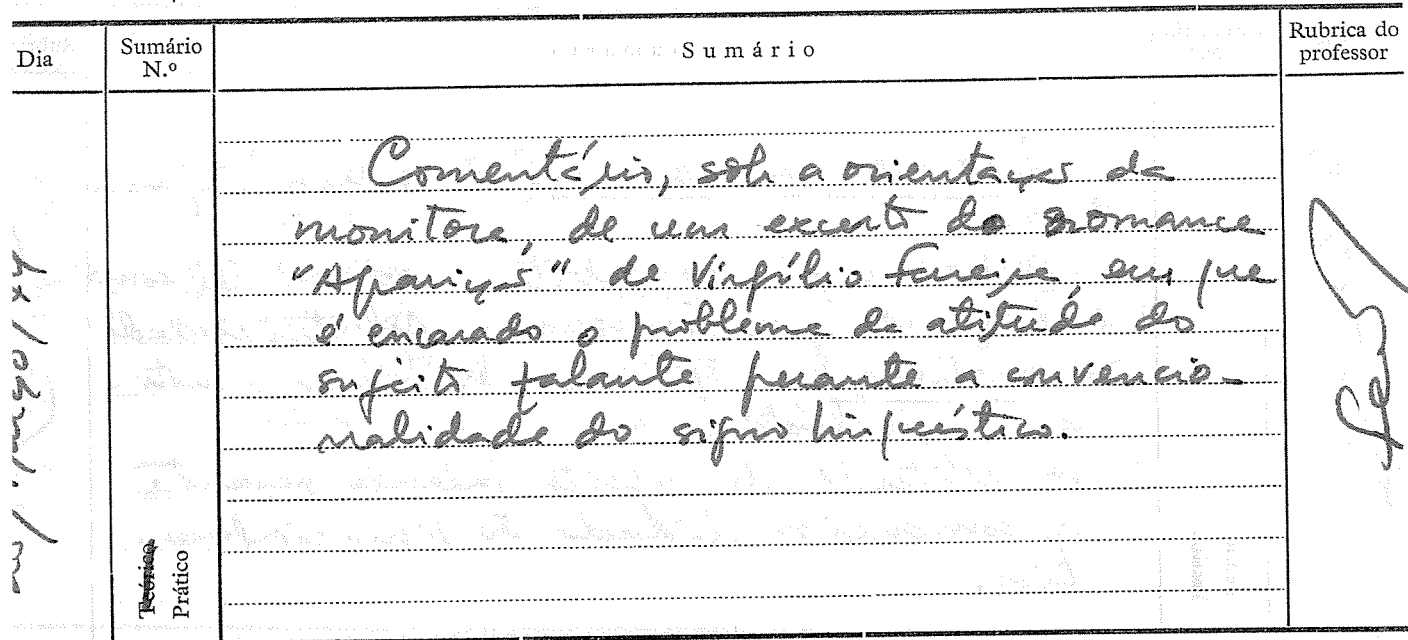 Dia
Sumário
N.º
Sumário
Rubrica do
professor
Comentário, sob a orientação da
monitora, de um excerto do romance
"Aparição" de Virgílio Ferreira em que
é encarado o problema da atitude do
sujeito falante perante a convencio-
nalidade do signo linguístico.
Teórico
Prático